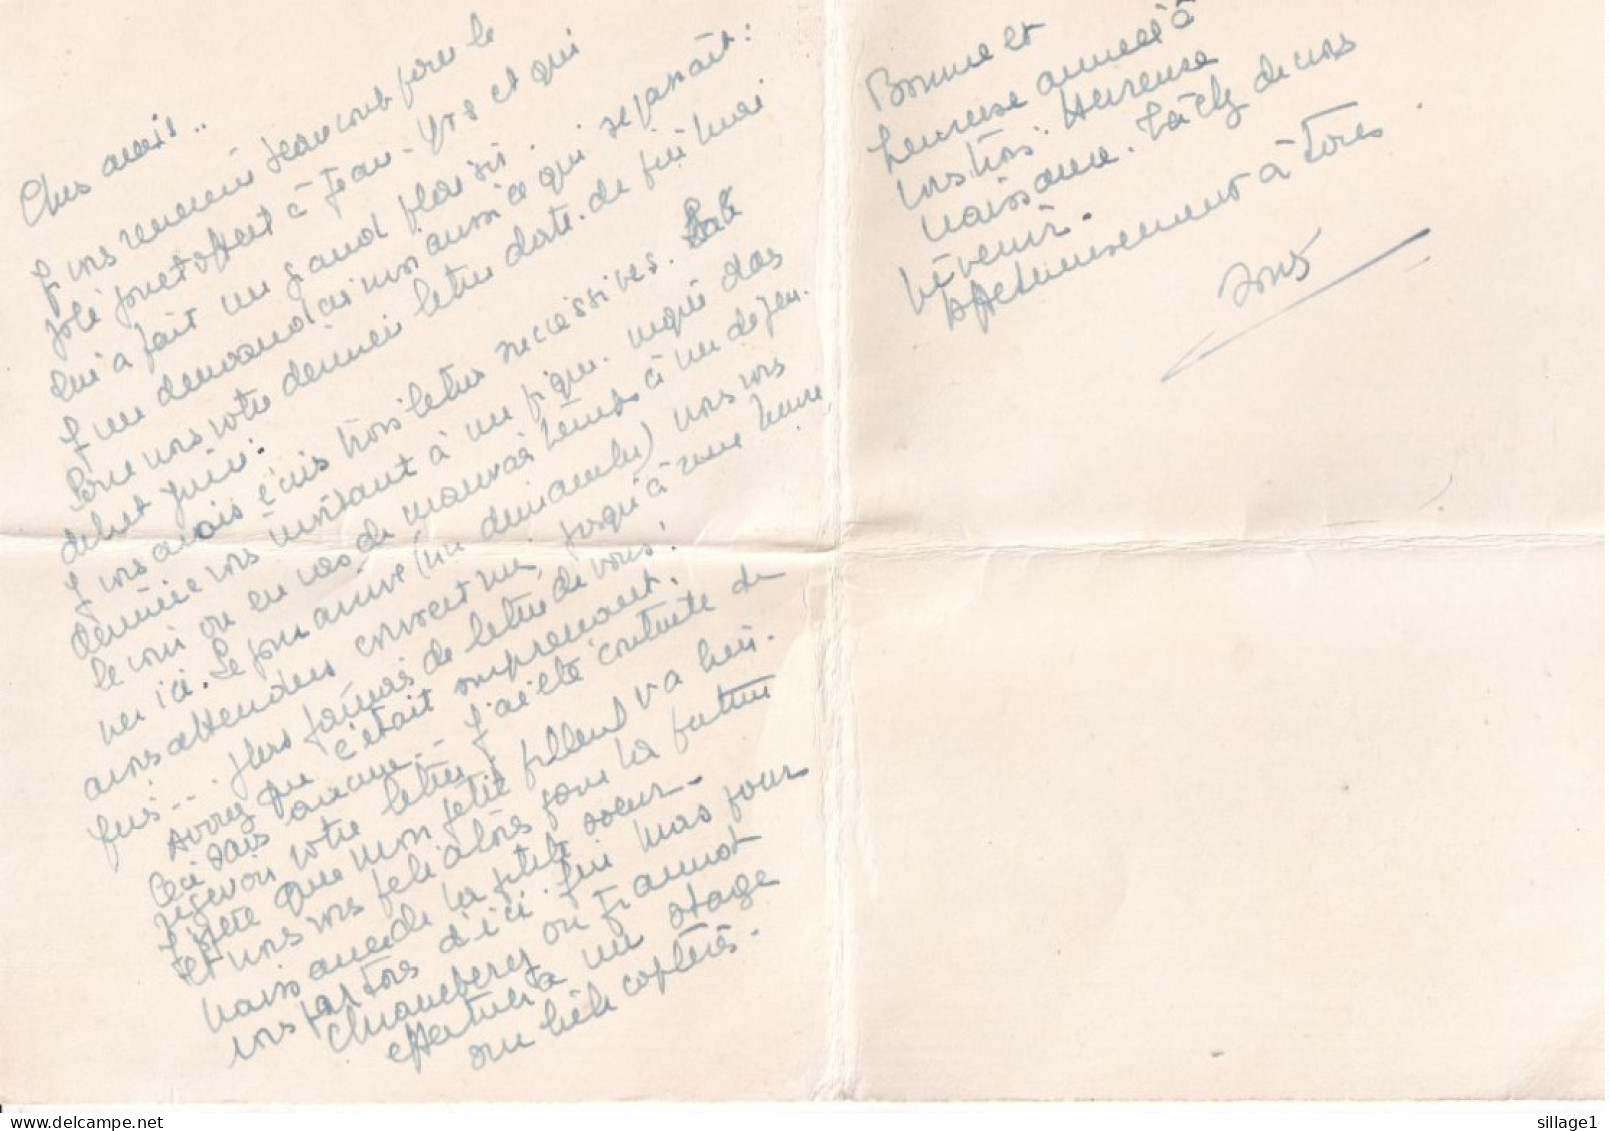 Chers amis..
Je vous remercie beaucoup pour le
joli jouet offert à Jean-Yves et qui
lui a fait un grand plaisir.
Je me demandais moi aussi ce qui se passait:
Pour nous votre dernière lettre date de fin mai
début juin.
Je vous avais écris trois lettres successives. La
dernière vous invitant à un pique-nique dans
le coin ou en cas de mauvais temps à un déjeu-
ner ici. Le jour arrivé (un dimanche) nous vous
avons attendus jusqu'à une heure
puis... plus jamais de lettre de vous!
Avouez que c'était surprenant.
Ceci sans rancune... J'ai été contente de
recevoir votre lettre!
J'espère que mon petit filleul va bien.
Et nous vous félicitons pour la future
naissance de la petite soeur.
Nous partons d'ici fin mars pour
Chambéry ou
effectuera un stage
sur hélicoptères.
Bonne et
heureuse année à
vous trois. Heureuse
naissance. Tâchez de nous
prévenir.
Affectueusement à tous